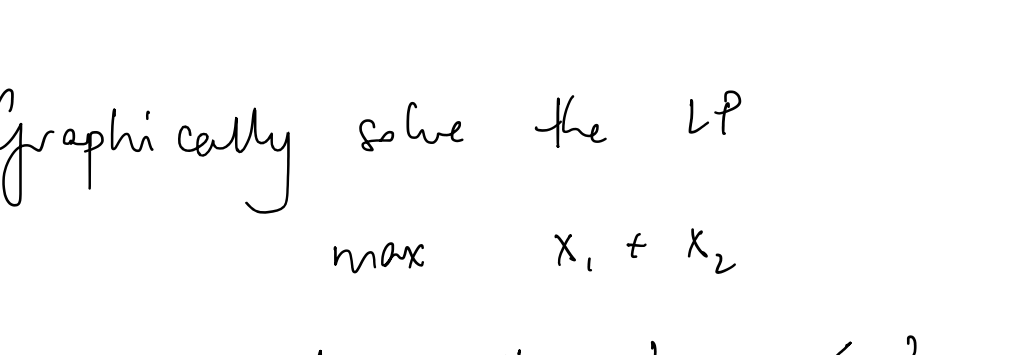 Graphically solve the LP
max x₁ + x₂